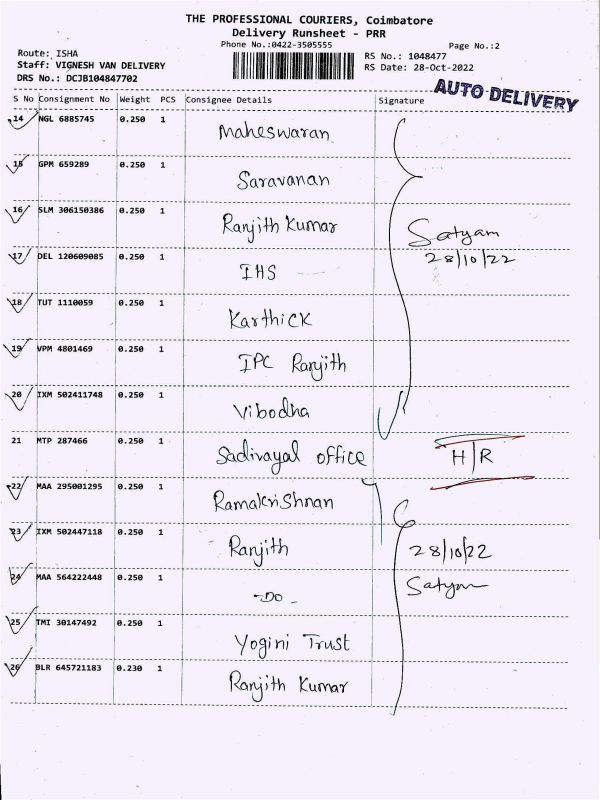 THE PROFESSIONAL COURIERS, Coimbatore
Delivery Runsheet - PRR
Phone No.:0422-3505555 Page No.:2
Route: ISHA RS No.: 1048477
Staff: VIGNESH VAN DELIVERY RS Date: 28-Oct-2022
DRS No.: DCJB104847702
AUTO DELIVERY
S No Consignment No Weight PCS Consignee Details Signature
14 NGL 6885745 0.250 1 Maheswaran
15 GPM 659289 0.250 1 Saravanan
16 SLM 306150386 0.250 1 Ranjith Kumar Satyam
17 DEL 120609085 0.250 1 IHS 28/10/22
18 TUT 1110059 0.250 1 Karthick
19 VPM 4801469 0.250 1 IPC Ranjith
20 IXM 502411748 0.250 1 Vibodha
21 MTP 287466 0.250 1 Sadivayal office H/R
22 MAA 295001295 0.250 1 Ramakrishnan
23 IXM 502447118 0.250 1 Ranjith 28/10/22
24 MAA 564222448 0.250 1 -Do- Satyam
25 TMI 30147492 0.250 1 Yogini Trust
26 BLR 645721183 0.230 1 Ranjith Kumar